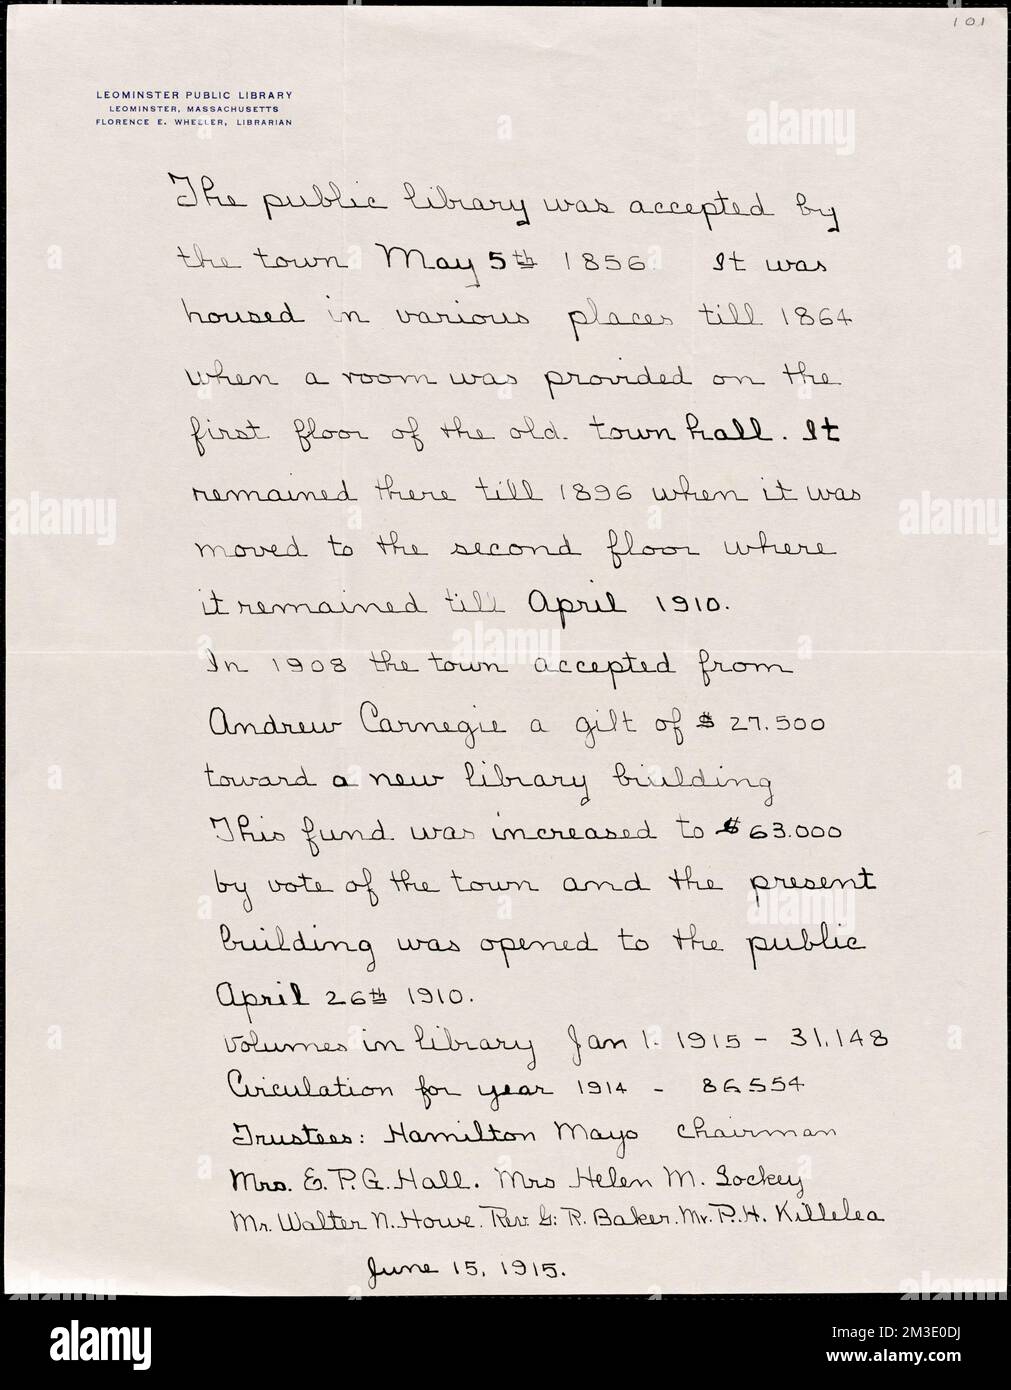 101
LEOMINSTER PUBLIC LIBRARY
LEOMINSTER, MASSACHUSETTS
FLORENCE E. WHEELER, LIBRARIAN
The public library was accepted by
the town May 5th 1856. It was
housed in various places till 1864
when a room was provided on the
first floor of the old town hall. It
remained there till 1896 when it was
moved to the second floor where
it remained till April 1910.
In 1908 the town accepted from
Andrew Carnegie a gift of $ 27.500
toward a new library building
This fund was increased to $ 63.000
by vote of the town and the present
building was opened to the public
April 26th 1910.
Volumes in library Jan 1. 1915 - 31,148
Circulation for year 1914 - 86554
Trustees: Hamilton Mayo Chairman
Mrs. E. P. G. Hall. Mrs Helen M. Lockey
Mr. Walter N. Howe. Rev. G. R. Baker. Mr. P. H. Killelea
June 15, 1915.
alamy
Image ID: 2M3E0DJ
www.alamy.com